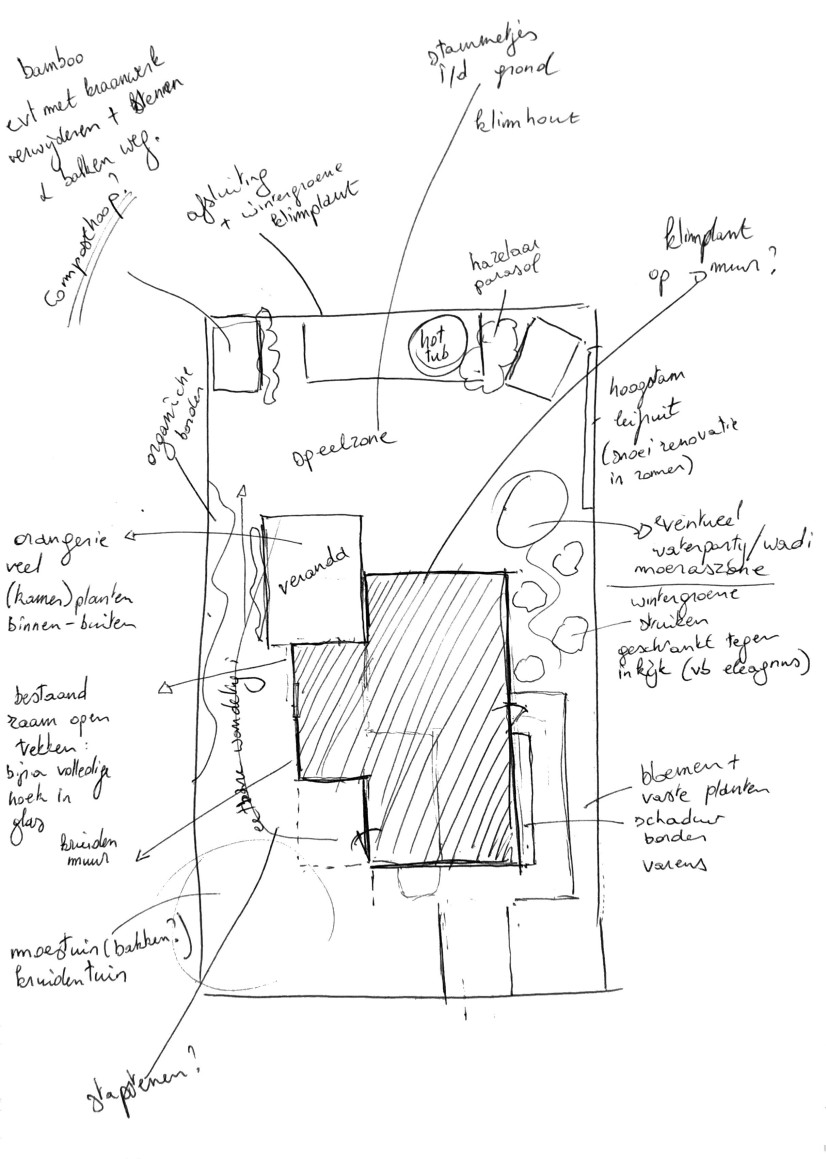 bamboo
evt met kraanwerk
verwijderen + stenen
& balken weg.
Composthoop?
afsluiting
+ wintergroene
klimplant
stammetjes
i/d grond
klimhout
hazelaar
parasol
klimplant
op muur?
hot
tub
organische
border
speelzone
hoogstam
leifruit
(snoei renovatie
in zomer)
orangerie
veel
(kamer)planten
binnen-buiten
veranda
eventueel
waterpartij/wadi
moeraszone
wintergroene
struiken
geschrankt tegen
inkijk (vb eleagnus)
bestaand
raam open
trekken:
bijna volledige
hoek in
glas
eetbare wandeling
kruiden
muur
bloemen +
vaste planten
schaduw
border
varens
moestuin (bakken?)
kruidentuin
stapstenen?